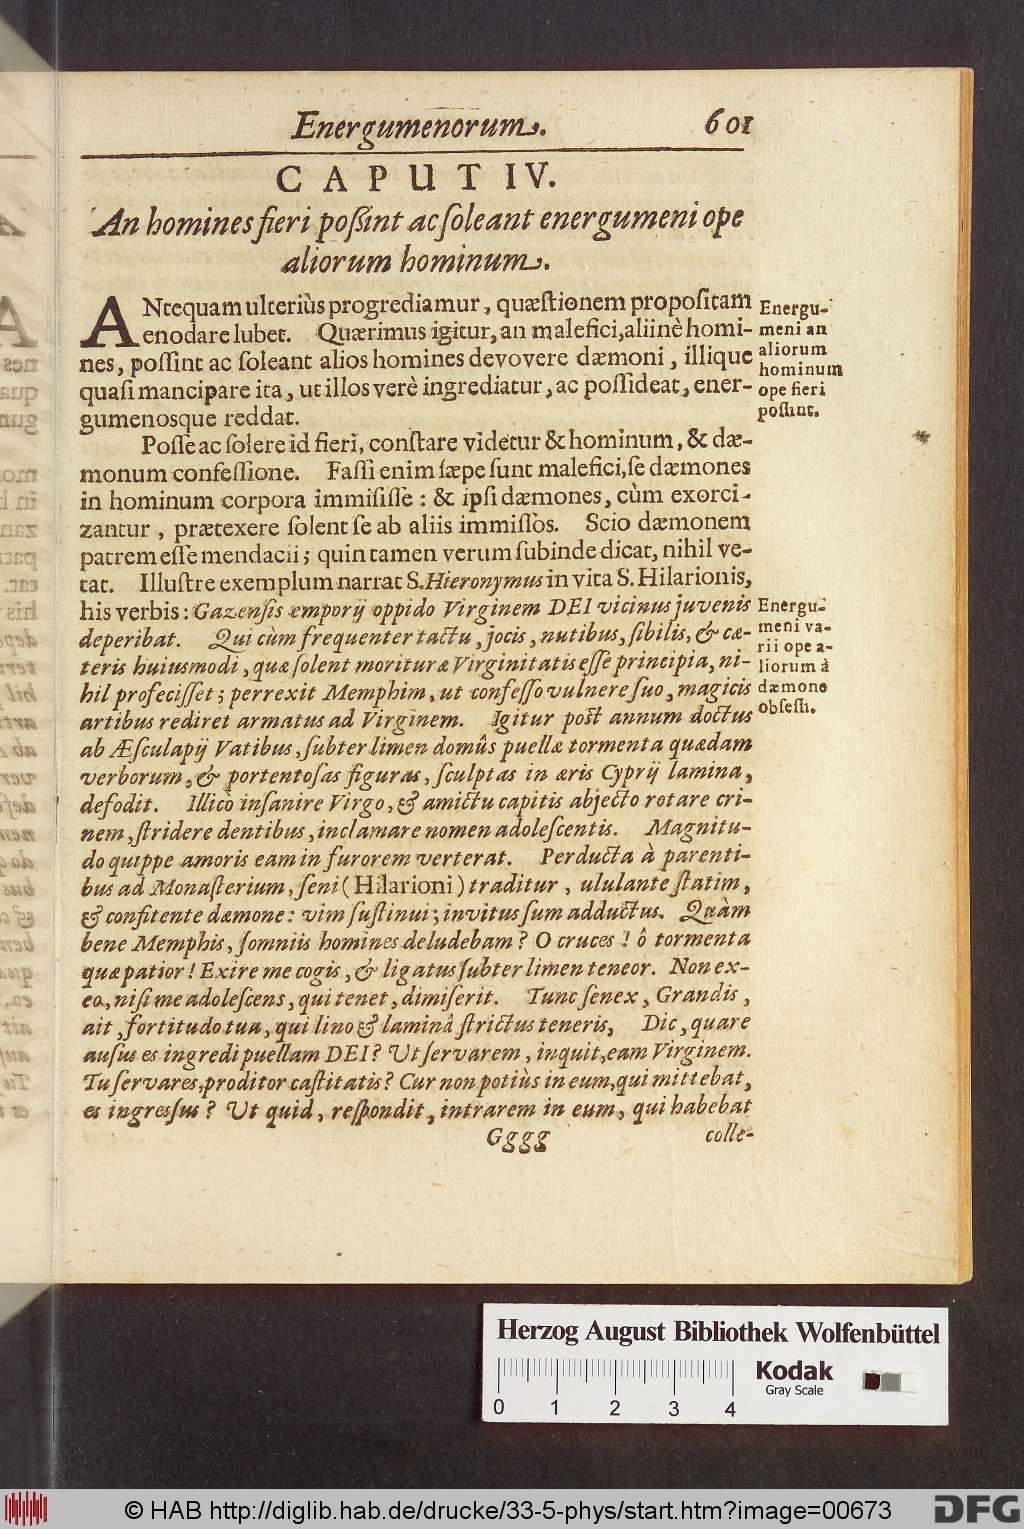 Energumenorum. 601
CAPUT IV.
An homines fieri poßint ac ſoleant energumeni ope
aliorum hominum.
ANtequam ulteriùs progrediamur, quæſtionem propoſitam
enodare lubet. Quærimus igitur, an malefici, aliinè homi-
nes, poſſint ac ſoleant alios homines devovere dæmoni, illique
quaſi mancipare ita, ut illos verè ingrediatur, ac poſſideat, ener-
gumenosque reddat.
Energu-
meni an
aliorum
hominum
ope fieri
poſſint.
Poſſe ac ſolere id fieri, conſtare videtur & hominum, & dæ-
monum confeſſione. Faſſi enim ſæpe ſunt malefici, ſe dæmones
in hominum corpora immiſiſſe: & ipſi dæmones, cùm exorci-
zantur, prætexere ſolent ſe ab aliis immiſſos. Scio dæmonem
patrem eſſe mendacii; quin tamen verum ſubinde dicat, nihil ve-
tat. Illuſtre exemplum narrat S. Hieronymus in vita S. Hilarionis,
his verbis: Gazenſis emporij oppido Virginem DEI vicinus juvenis
deperibat. Qui cùm frequenter tactu, jocis, nutibus, ſibilis, & cæ-
teris huiusmodi, quæ ſolent morituræ Virginitatis eſſe principia, ni-
hil profeciſſet; perrexit Memphim, ut confeſſo vulnere ſuo, magicis
artibus rediret armatus ad Virginem. Igitur poſt annum doctus
ab Æſculapij Vatibus, ſubter limen domûs puellæ tormenta quædam
verborum, & portentoſas figuras, ſculptas in æris Cyprij lamina,
defodit. Illicò inſanire Virgo, & amictu capitis abjecto rotare cri-
nem, ſtridere dentibus, inclamare nomen adoleſcentis. Magnitu-
do quippe amoris eam in furorem verterat. Perducta à parenti-
bus ad Monaſterium, ſeni (Hilarioni) traditur, ululante ſtatim,
& confitente dæmone: vim ſuſtinui; invitus ſum adductus. Quàm
bene Memphis, ſomniis homines deludebam? O cruces! ô tormenta
quæ patior! Exire me cogis, & ligatus ſubter limen teneor. Non ex-
eo, niſi me adoleſcens, qui tenet, dimiſerit. Tunc ſenex, Grandis,
ait, fortitudo tua, qui lino & laminâ ſtrictus teneris, Dic, quare
auſus es ingredi puellam DEI? Ut ſervarem, inquit, eam Virginem.
Tu ſervares, proditor caſtitatis? Cur non potiùs in eum, qui mittebat,
es ingreſſus? Ut quid, reſpondit, intrarem in eum, qui habebat
Energu-
meni va-
rii ope a-
liorum à
dæmone
obſeſſi.
Gggg colle-
Herzog August Bibliothek Wolfenbüttel
Kodak
Gray Scale
0 1 2 3 4
© HAB http://diglib.hab.de/drucke/33-5-phys/start.htm?image=00673
DFG